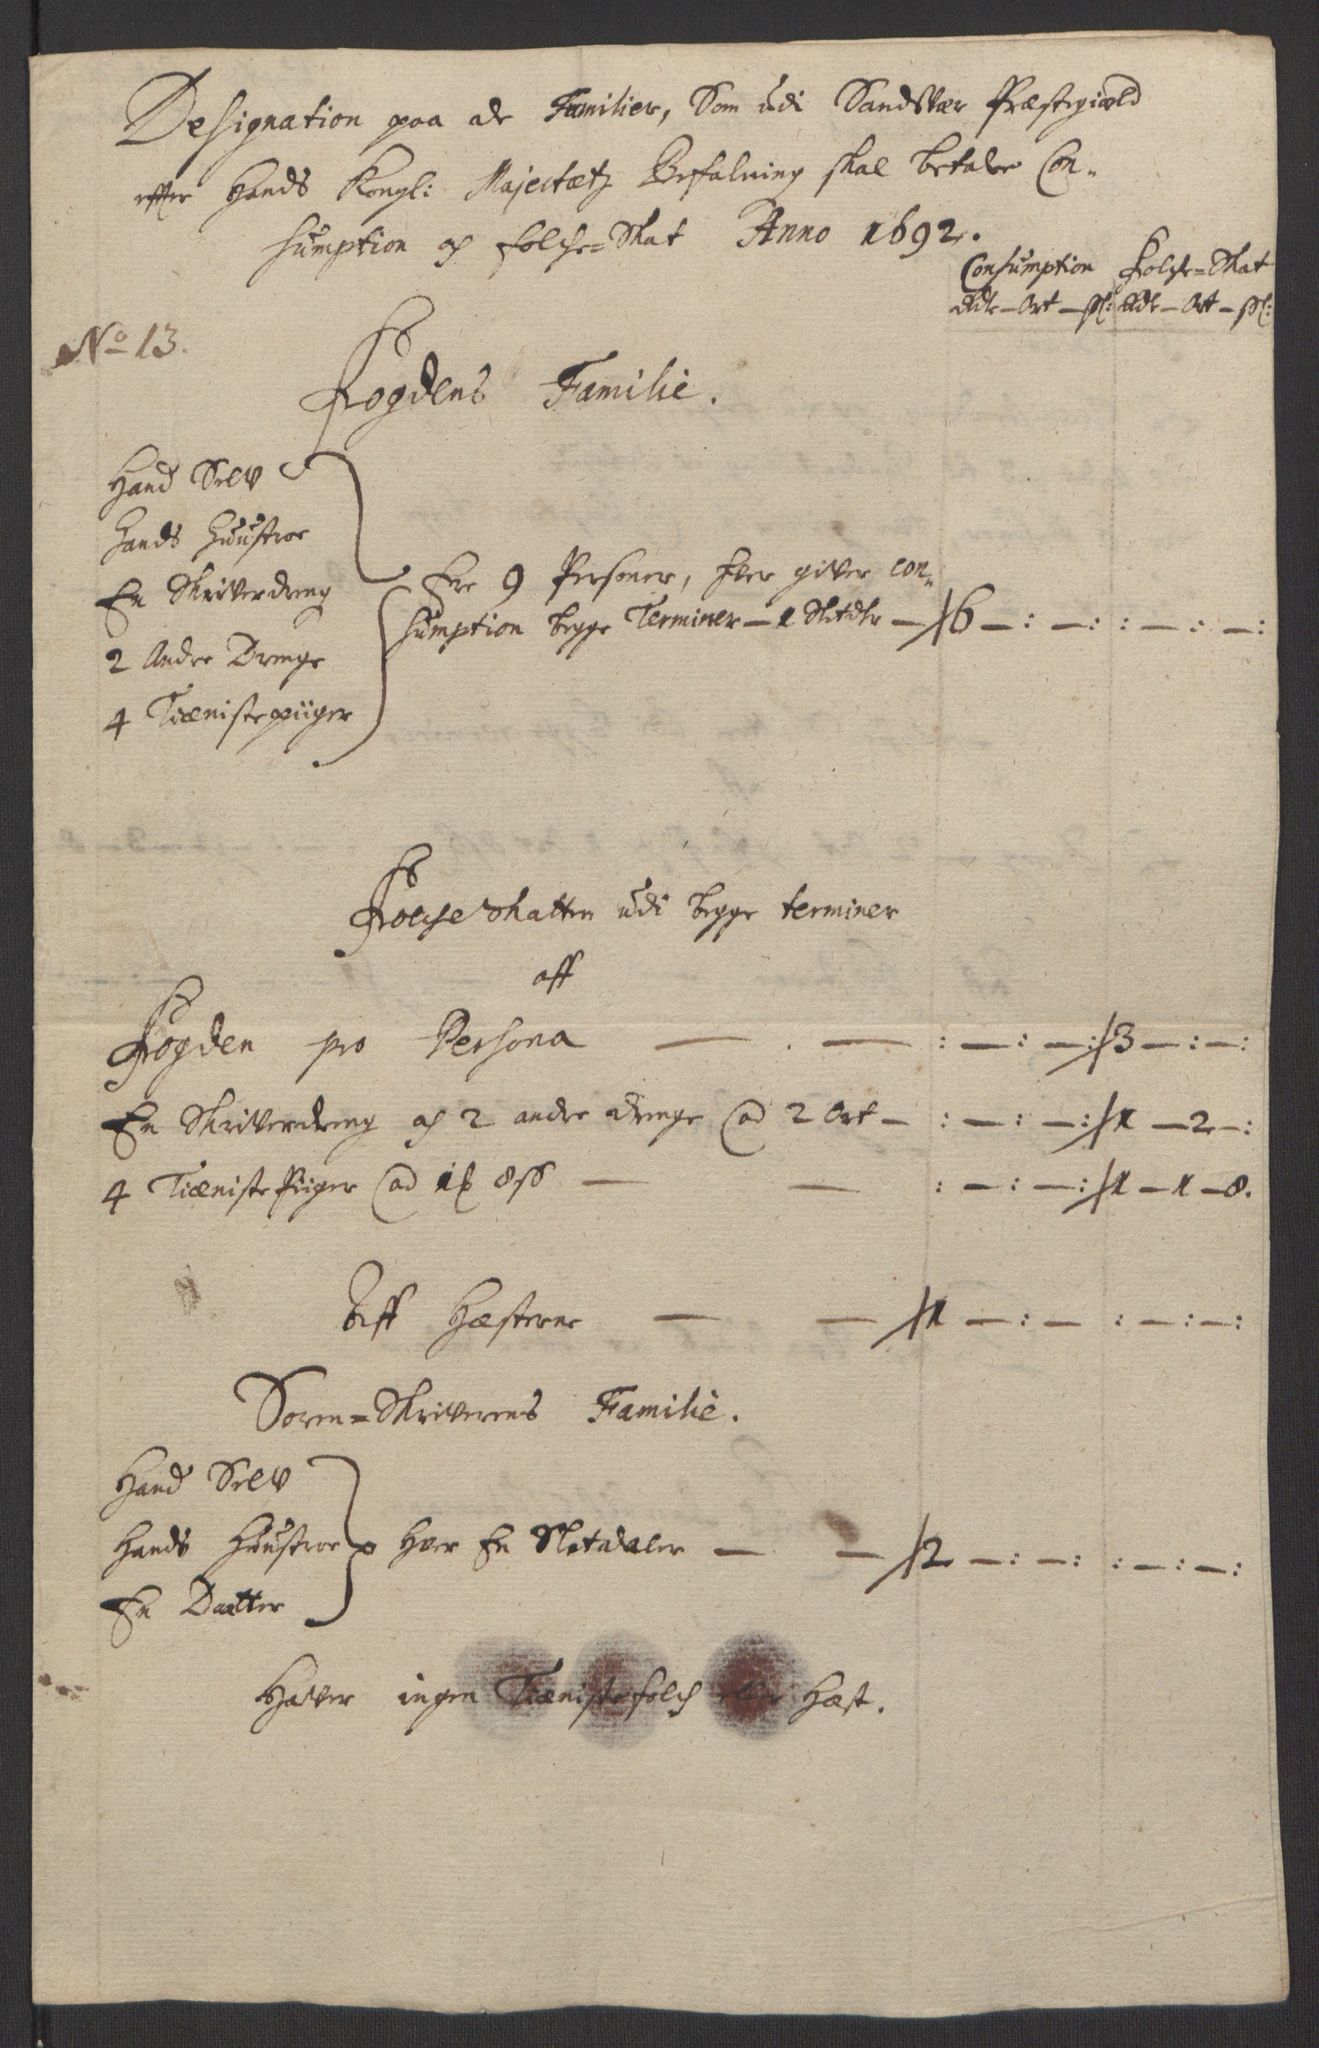 Designation paa de Familier, Som udi Sandsvær Præstegield
effter Hands Kongl: Majestætz Befalning skal betale Con-
sumption og folche-Skat Anno 1692.
Consumption Folche-Skat
Rdlr — Ort — ß: Rdlr — Ort — ß:
No 13.
Fogdens Familie.
Hand Selv
Hands Huustroe
En Skriverdreng
2 Andre Drenge
4 Tieniste piiger
Ere 9 Personer, hver giver con-
sumption begge Terminer — 1 Sletdlr — 6 — : — : : — : — :
Folcheskatten udi begge terminer
aff
Fogden pro Persona — . — : — : — : 3 — : — :
En Skriverdreng og 2 andre drenge @ 2 Ort — : — : — : 1 — 2 — :
4 Tieniste Piiger @ 8 ß — — : — : — : 1 — 1 — 8.
Aff Hæsterne — — 1 — : — : — : — :
Soren-Skriverens Familie.
Hand Selv
Hands Huustroe
En Daatter
Hver En Sletdaler — — 2 — : — : : — : — :
Haver ingen Tieniste folch eller Hæst.